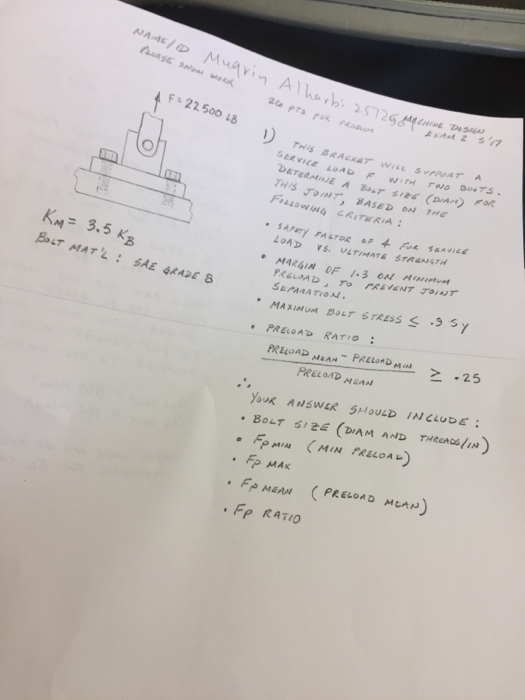 NAME/ID Muqrin Alharbi
PLEASE SHOW WORK
MACHINE DESIGN
EXAM 2 S'17
26 PTS PER PROBLEM
F = 22500 LB
1)
THIS BRACKET WILL SUPPORT A
SERVICE LOAD F WITH TWO BOLTS.
DETERMINE A BOLT SIZE (DIAM) FOR
THIS JOINT, BASED ON THE
FOLLOWING CRITERIA:
• SAFETY FACTOR OF 4 FOR SERVICE
LOAD VS. ULTIMATE STRENGTH
• MARGIN OF 1.3 ON MINIMUM
PRELOAD, TO PREVENT JOINT
SEPARATION.
• MAXIMUM BOLT STRESS ≤ .9 SY
• PRELOAD RATIO:
PRELOAD MEAN - PRELOAD MIN
PRELOAD MEAN
≥ .25
KM = 3.5 KB
BOLT MAT'L: SAE GRADE 8
∴
YOUR ANSWER SHOULD INCLUDE:
• BOLT SIZE (DIAM AND THREADS/IN)
• FP MIN (MIN PRELOAD)
• FP MAX
• FP MEAN (PRELOAD MEAN)
• FP RATIO